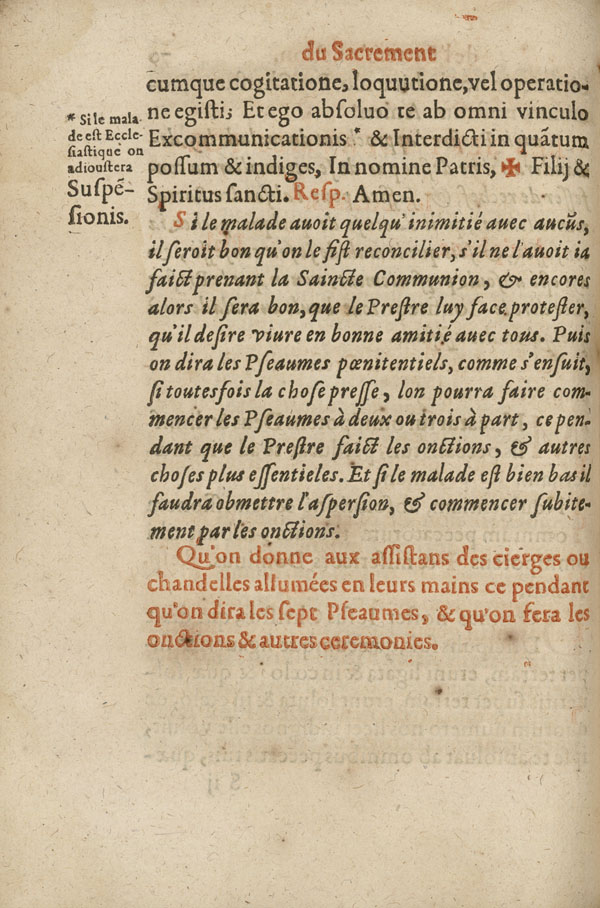 du Sacrement
cumque cogitatione, loquutione, vel operatio-
ne egisti; Et ego absoluo te ab omni vinculo
Excommunicationis * & Interdicti in quãtum
possum & indiges, In nomine Patris, ✠ Filij &
Spiritus sancti. Resp. Amen.
* Si le mala
de est Eccle-
siastique on
adioustera
Suspẽ-
sionis.
Si le malade auoit quelqu'inimitié auec aucũs,
il seroit bon qu'on le fist reconcilier, s'il ne l'auoit ia
faict prenant la Saincte Communion, & encores
alors il sera bon, que le Prestre luy face protester,
qu'il desire viure en bonne amitié auec tous. Puis
on dira les Pseaumes pœnitentiels, comme s'ensuit,
si toutesfois la chose presse, lon pourra faire com-
mencer les Pseaumes à deux ou trois à part, ce pen-
dant que le Prestre faict les onctions, & autres
choses plus essentieles. Et si le malade est bien bas il
faudra obmettre l'aspersion, & commencer subite-
ment par les onctions.
Qu'on donne aux assistans des cierges ou
chandelles allumées en leurs mains ce pendant
qu'on dira les sept Pseaumes, & qu'on fera les
onctions & autres ceremonies.